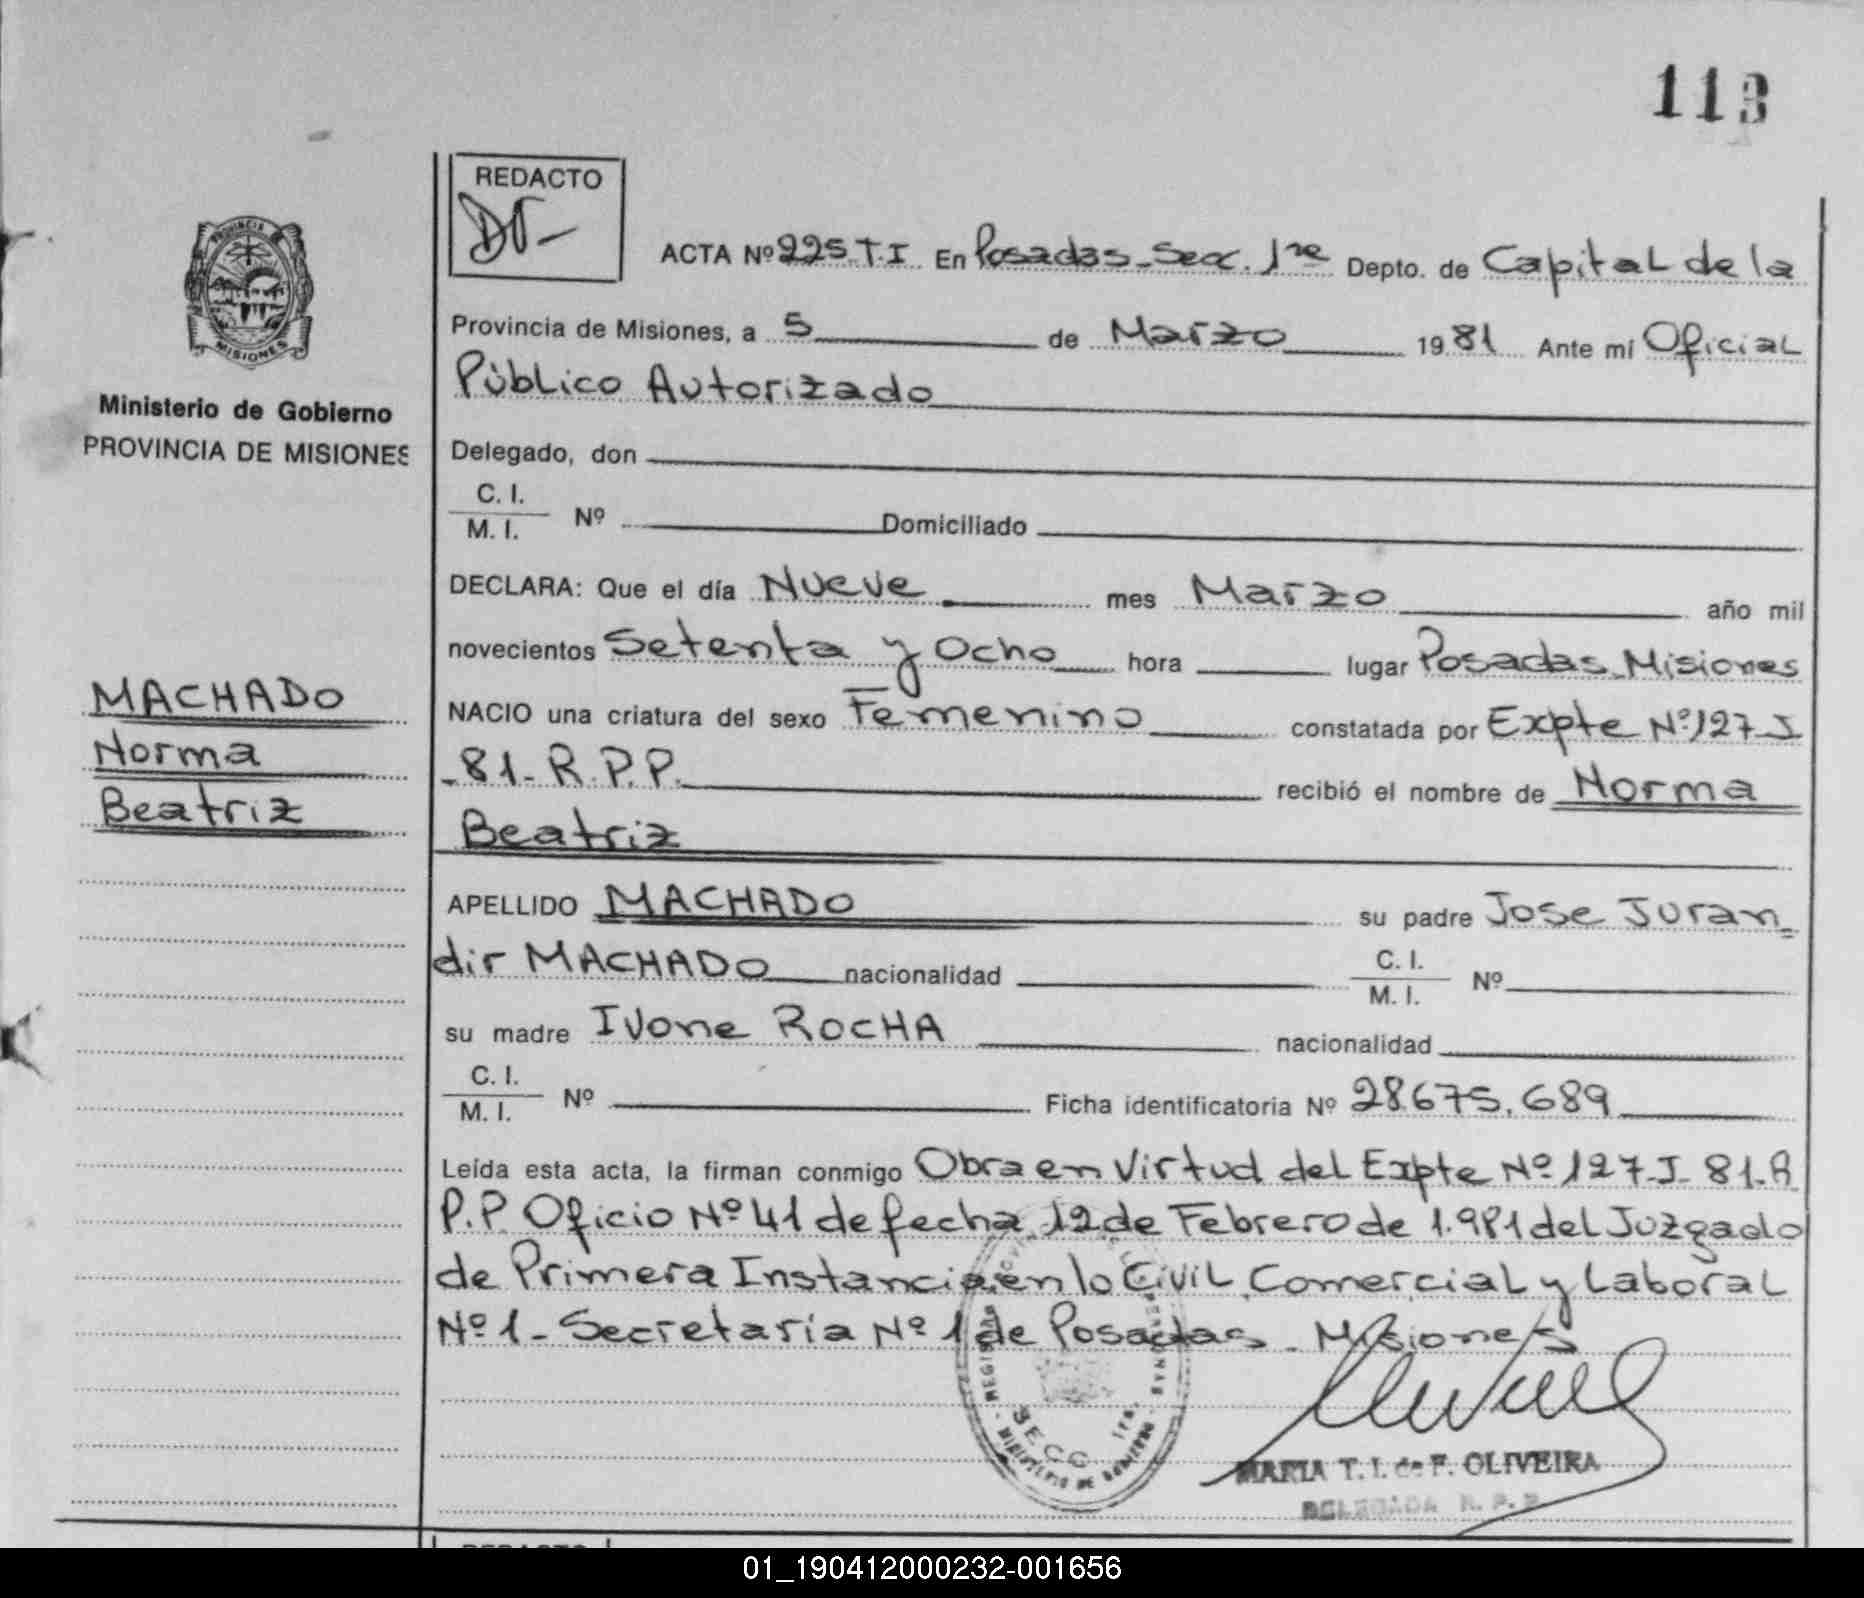 113
REDACTO
ACTA Nº 225 T.I En Posadas-Secc. 1ra Depto. de Capital de la
PROVINCIA DE
MISIONES
Provincia de Misiones, a 5 de Marzo 1981 Ante mí Oficial
Público Autorizado
Ministerio de Gobierno
PROVINCIA DE MISIONES
Delegado, don
C. I.
M. I. Nº Domiciliado
DECLARA: Que el día Nueve mes Marzo año mil
novecientos Setenta y Ocho hora lugar Posadas-Misiones
MACHADO
Norma
Beatriz
NACIO una criatura del sexo Femenino constatada por Expte Nº 127-J
-81-R.P.P. recibió el nombre de Norma
Beatriz
APELLIDO MACHADO su padre Jose Juran
dir MACHADO nacionalidad C. I.
M. I. Nº
su madre Ivone ROCHA nacionalidad
C. I.
M. I. Nº Ficha identificatoria Nº 28.675.689
Leída esta acta, la firman conmigo Obra en Virtud del Expte Nº 127-J-81-R.
P.P. Oficio Nº 41 de fecha 12 de Febrero de 1.981 del Juzgado
de Primera Instancia en lo Civil, Comercial y Laboral
Nº 1- Secretaría Nº 1 de Posadas - Misiones
SECC. 1ra.
MINISTERIO DE GOBIERNO
MARIA T. I. de F. OLIVEIRA
DELEGADA R. P. P.
REDACTO
01_190412000232-001656